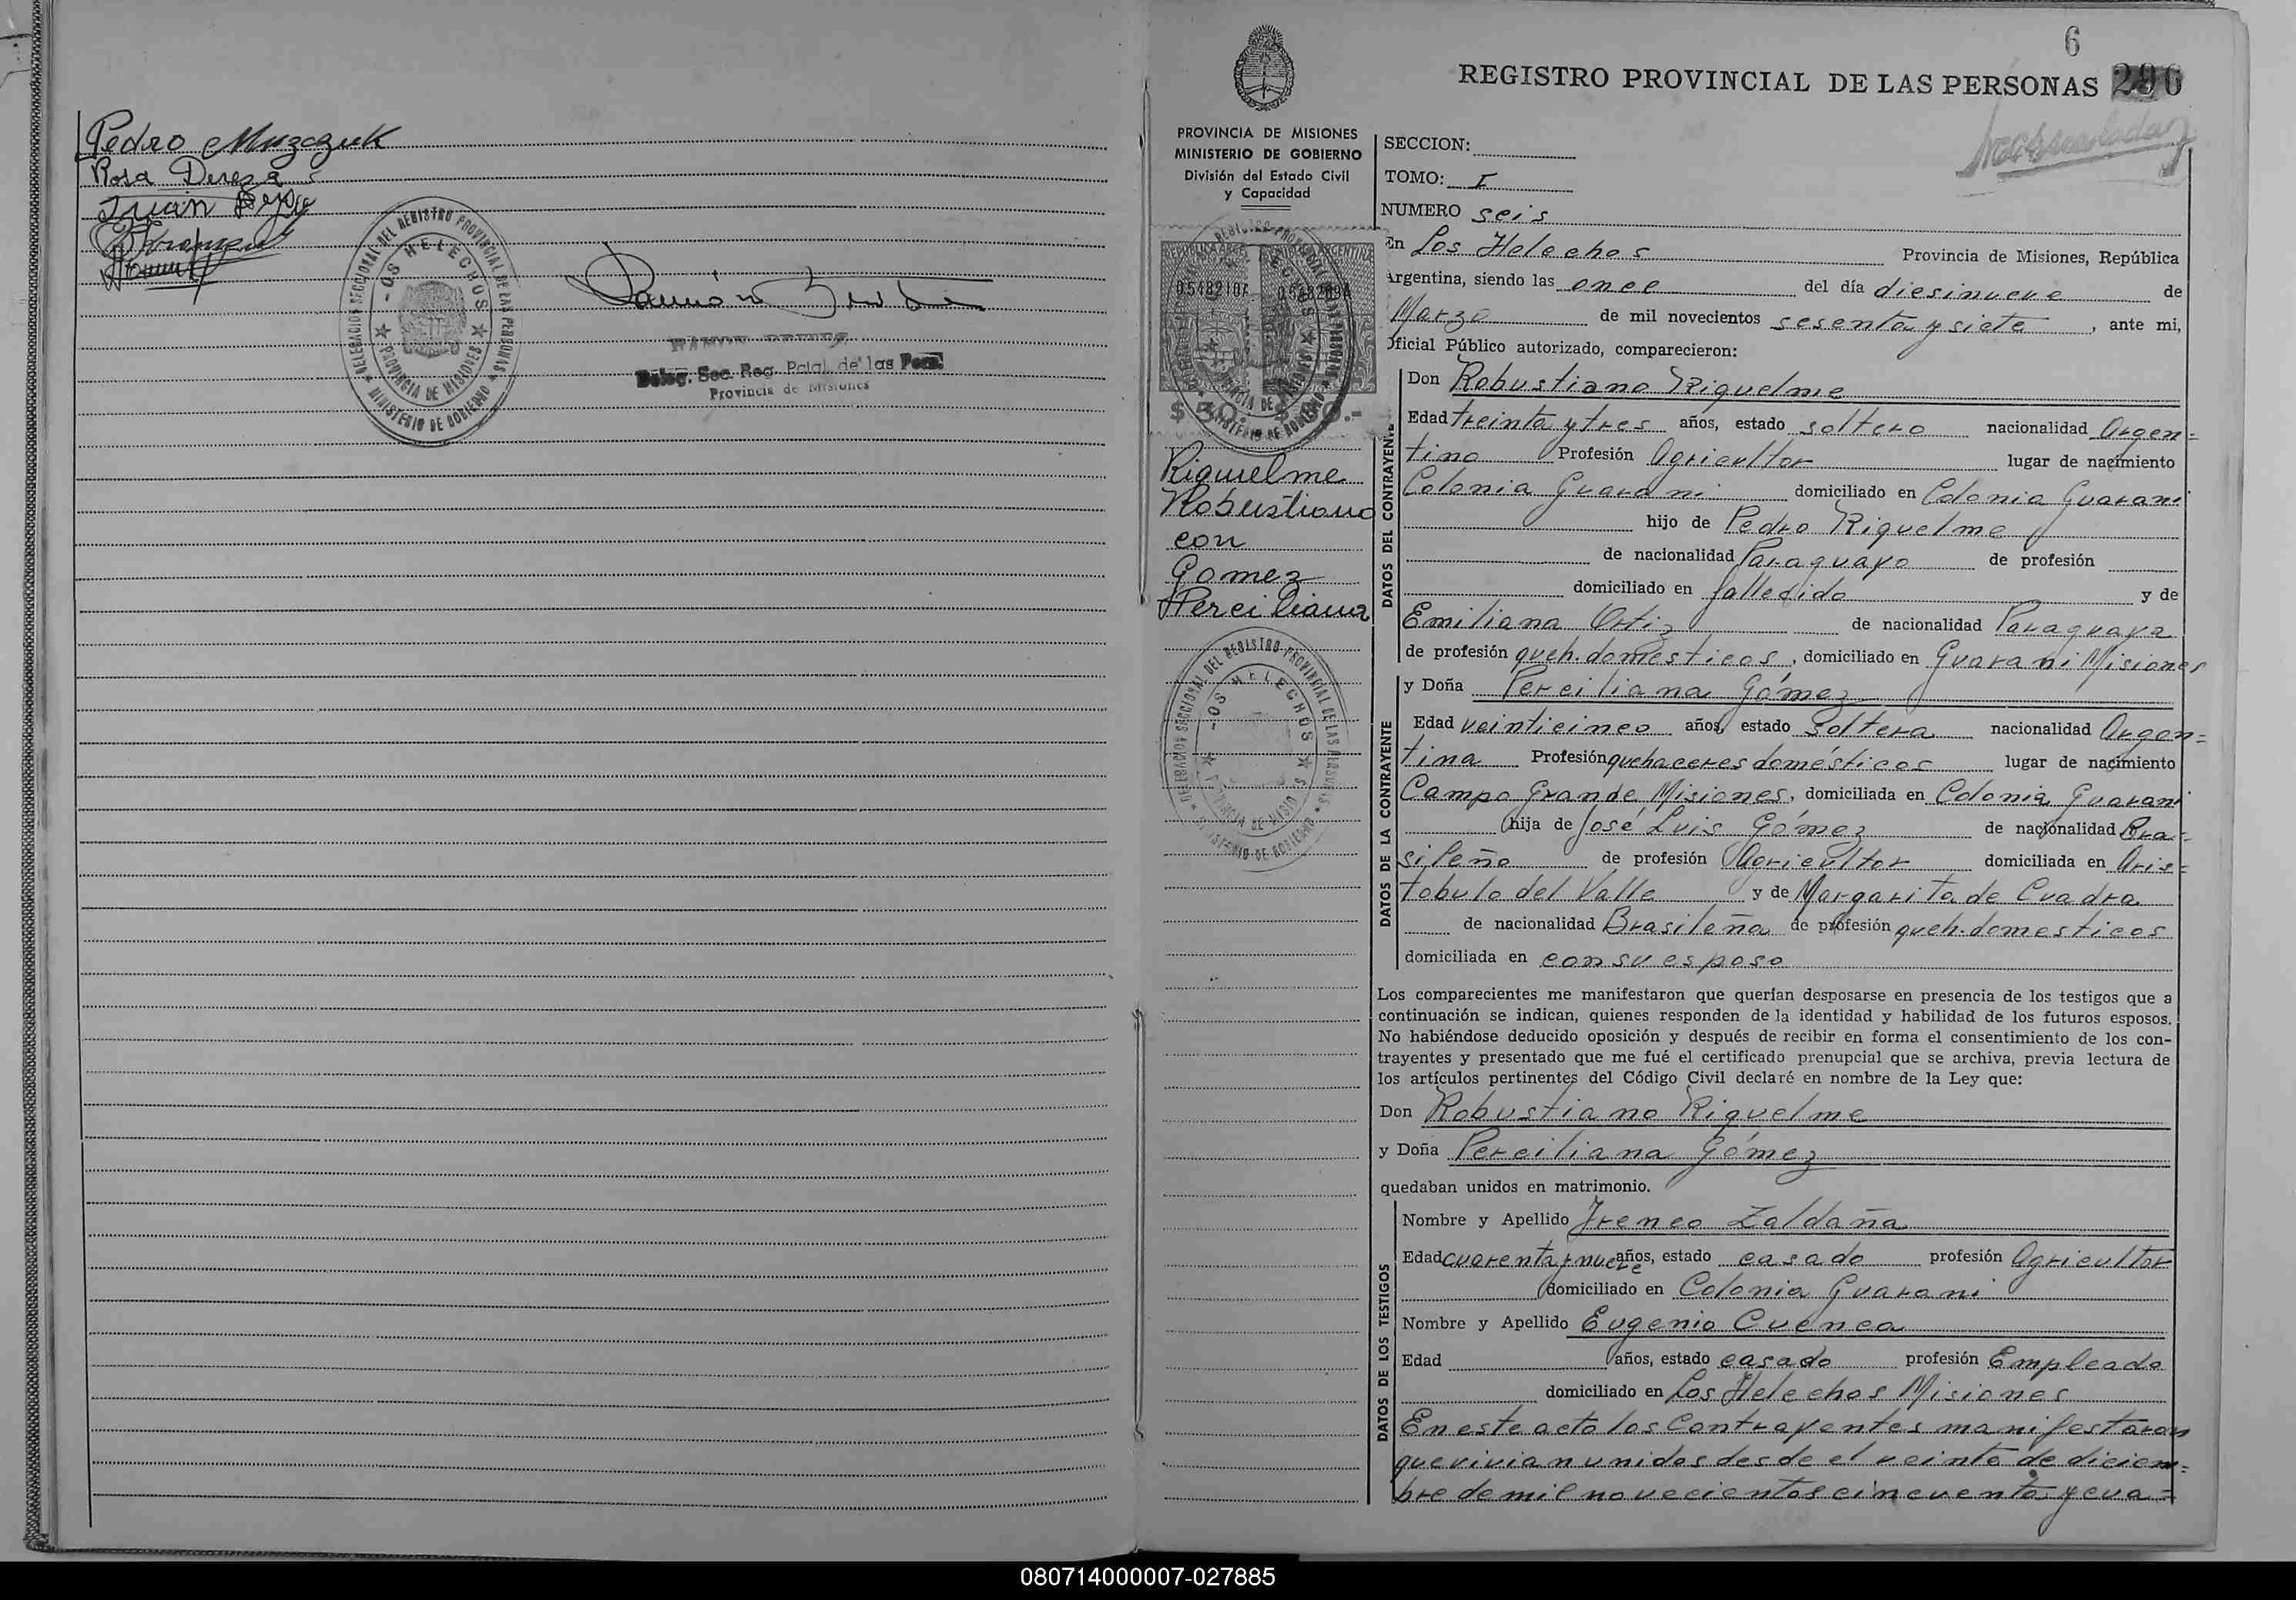 Pedro Muzczuk
Rosa Dereza
Juan
DELEGACION SECCIONAL DEL REGISTRO PROVINCIAL DE LAS PERSONAS
LOS HELECHOS
PROVINCIA DE MISIONES
MINISTERIO DE GOBIERNO
Ramón
RAMON
Deleg. Sec. Reg. Pcial. de las Pers.
Provincia de Misiones
6
REGISTRO PROVINCIAL DE LAS PERSONAS 296
PROVINCIA DE MISIONES
MINISTERIO DE GOBIERNO
División del Estado Civil
y Capacidad
Riquelme
Robustiano
con
Gomez
Perciliana
DELEGACION SECCIONAL DEL REGISTRO PROVINCIAL DE LAS PERSONAS
LOS HELECHOS
PROVINCIA DE MISIONES
MINISTERIO DE GOBIERNO
SECCION:
TOMO: I
NUMERO seis
En Los Helechos Provincia de Misiones, República
Argentina, siendo las once del día diesinueve de
Marzo de mil novecientos sesenta y siete, ante mi,
Oficial Público autorizado, comparecieron:
DATOS DEL CONTRAYENTE
Don Robustiano Riquelme
Edad treinta y tres años, estado soltero nacionalidad Argen=
tino Profesión Agricultor lugar de nacimiento
Colonia Guarani domiciliado en Colonia Guarani
hijo de Pedro Riquelme
de nacionalidad Paraguayo de profesión
domiciliado en fallecido y de
Emiliana Ortiz de nacionalidad Paraguaya
de profesión queh. domésticos, domiciliado en Guarani Misiones
DATOS DE LA CONTRAYENTE
y Doña Perciliana Gómez
Edad veinticinco años, estado Soltera nacionalidad Argen=
tina Profesión quehaceres domésticos lugar de nacimiento
Campo Grande Misiones, domiciliada en Colonia Guarani
hija de José Luis Gómez de nacionalidad Bra=
sileño de profesión Agricultor domiciliada en Aris=
tobulo del Valle y de Margarita de Cuadra
de nacionalidad Brasileña de profesión queh. domesticos
domiciliada en con su esposo
Los comparecientes me manifestaron que querían desposarse en presencia de los testigos que a
continuación se indican, quienes responden de la identidad y habilidad de los futuros esposos.
No habiéndose deducido oposición y después de recibir en forma el consentimiento de los con-
trayentes y presentado que me fué el certificado prenupcial que se archiva, previa lectura de
los artículos pertinentes del Código Civil declaré en nombre de la Ley que:
Don Robustiano Riquelme
y Doña Perciliana Gómez
quedaban unidos en matrimonio.
DATOS DE LOS TESTIGOS
Nombre y Apellido Ireneo Zaldaña
Edad cuarenta y nueve años, estado casado profesión Agricultor
domiciliado en Colonia Guarani
Nombre y Apellido Eugenio Cuenca
Edad años, estado casado profesión Empleado
domiciliado en Los Helechos Misiones
En este acto los Contrayentes manifestaron
que vivian unidos desde el veinte de diciem=
bre de mil novecientos cincuenta y cua=
080714000007-027885